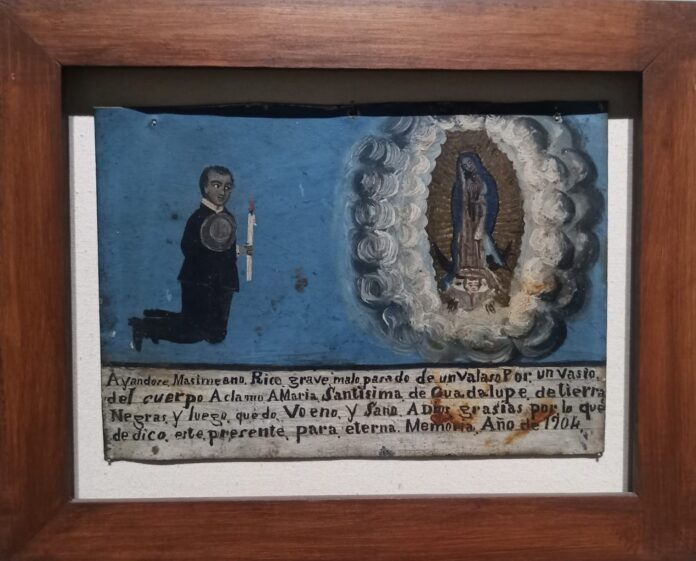 Ayandose, Masimeano, Rico, grave, malo, parado de un Valaso Por, un Vasio,
del cuerpo Aclamo AMaria, Santisima, de Guadalupe, de tierra
Negras, y luego, quedo, Voeno, y Sano, A Dios grasias por lo que
de dico, este, presente, para, eterna. Memoria, Año de 1904.